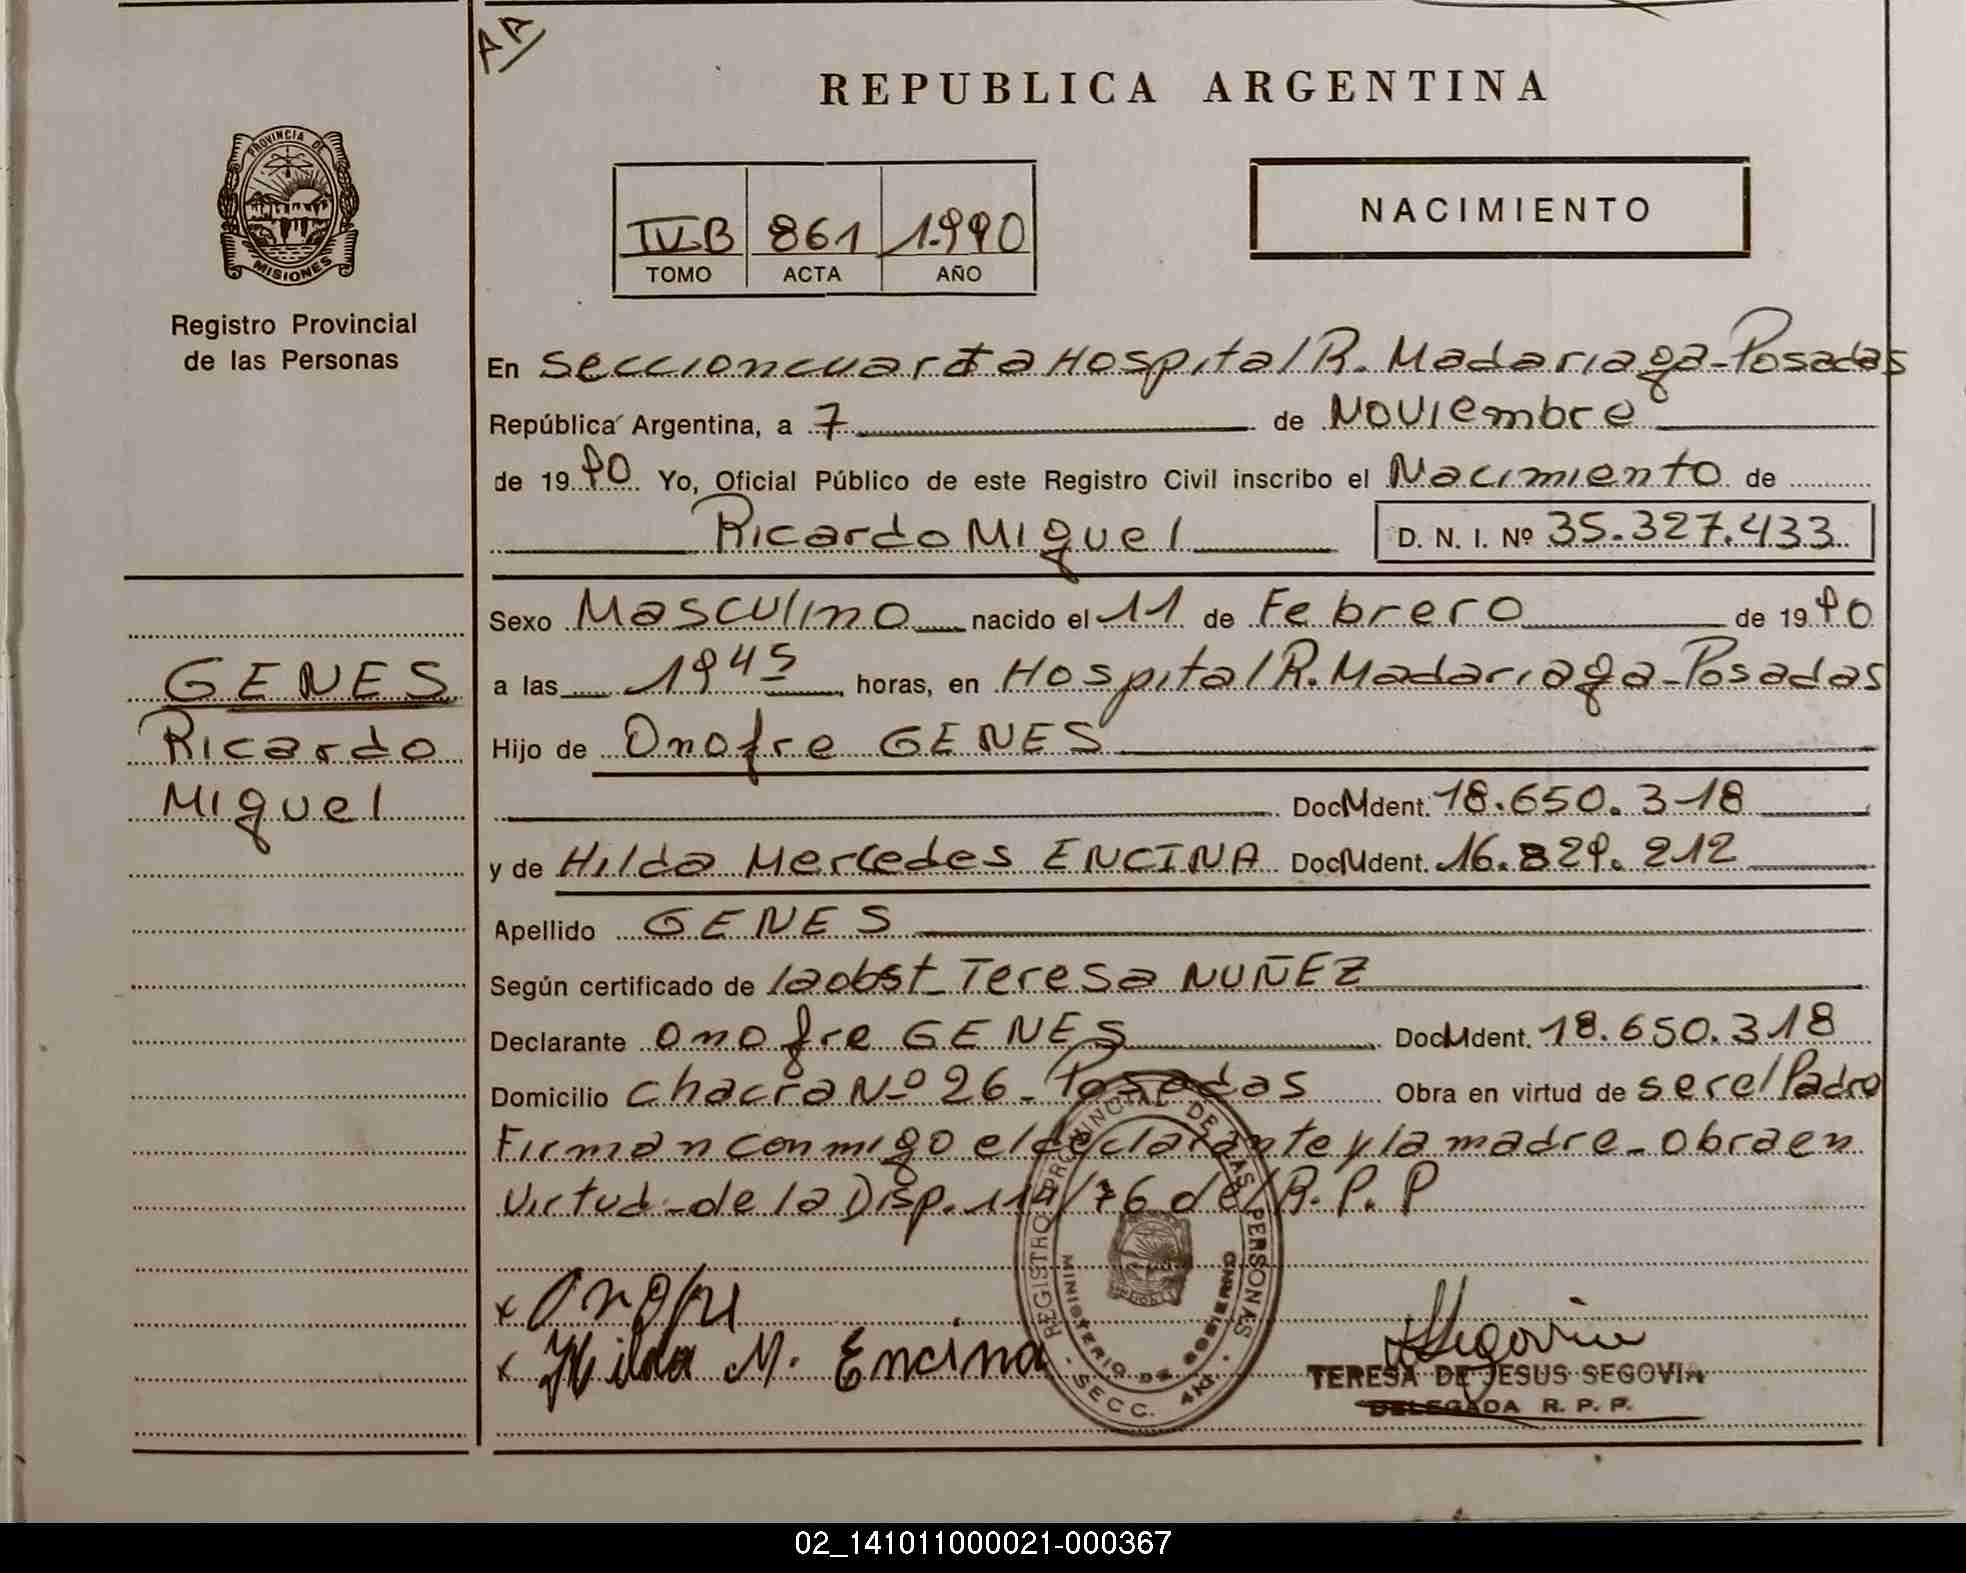 AA
REPUBLICA ARGENTINA
PROVINCIA DE
MISIONES
Registro Provincial
de las Personas
IV.B 861 1.990
TOMO ACTA AÑO
NACIMIENTO
En seccion cuarta Hospital R. Madariaga - Posadas
República Argentina, a 7 de Noviembre
de 1990 Yo, Oficial Público de este Registro Civil inscribo el Nacimiento de
Ricardo Miguel D. N. I. Nº 35.327.433
Sexo Masculino nacido el 11 de Febrero de 1990
a las 19 45 horas, en Hospital R. Madariaga - Posadas
GENES
Ricardo
Miguel
Hijo de Onofre GENES
Doc. Ident. 18.650.318
y de Hilda Mercedes ENCINA Doc. Ident. 16.829.212
Apellido GENES
Según certificado de la obst. Teresa NUÑEZ
Declarante Onofre GENES Doc. Ident. 18.650.318
Domicilio chacra Nº 26 - Posadas Obra en virtud de ser el Padre
Firman conmigo el declarante y la madre - obra en
virtud - de la Disp. /76 del R. P. P
x Onofre
x Hilda M. Encina
REGISTRO PROVINCIAL DE LAS PERSONAS
MINISTERIO DE GOBIERNO
SECC. 4ta.
Segovia
TERESA DE JESUS SEGOVIA
DELEGADA R. P. P.
02_141011000021-000367